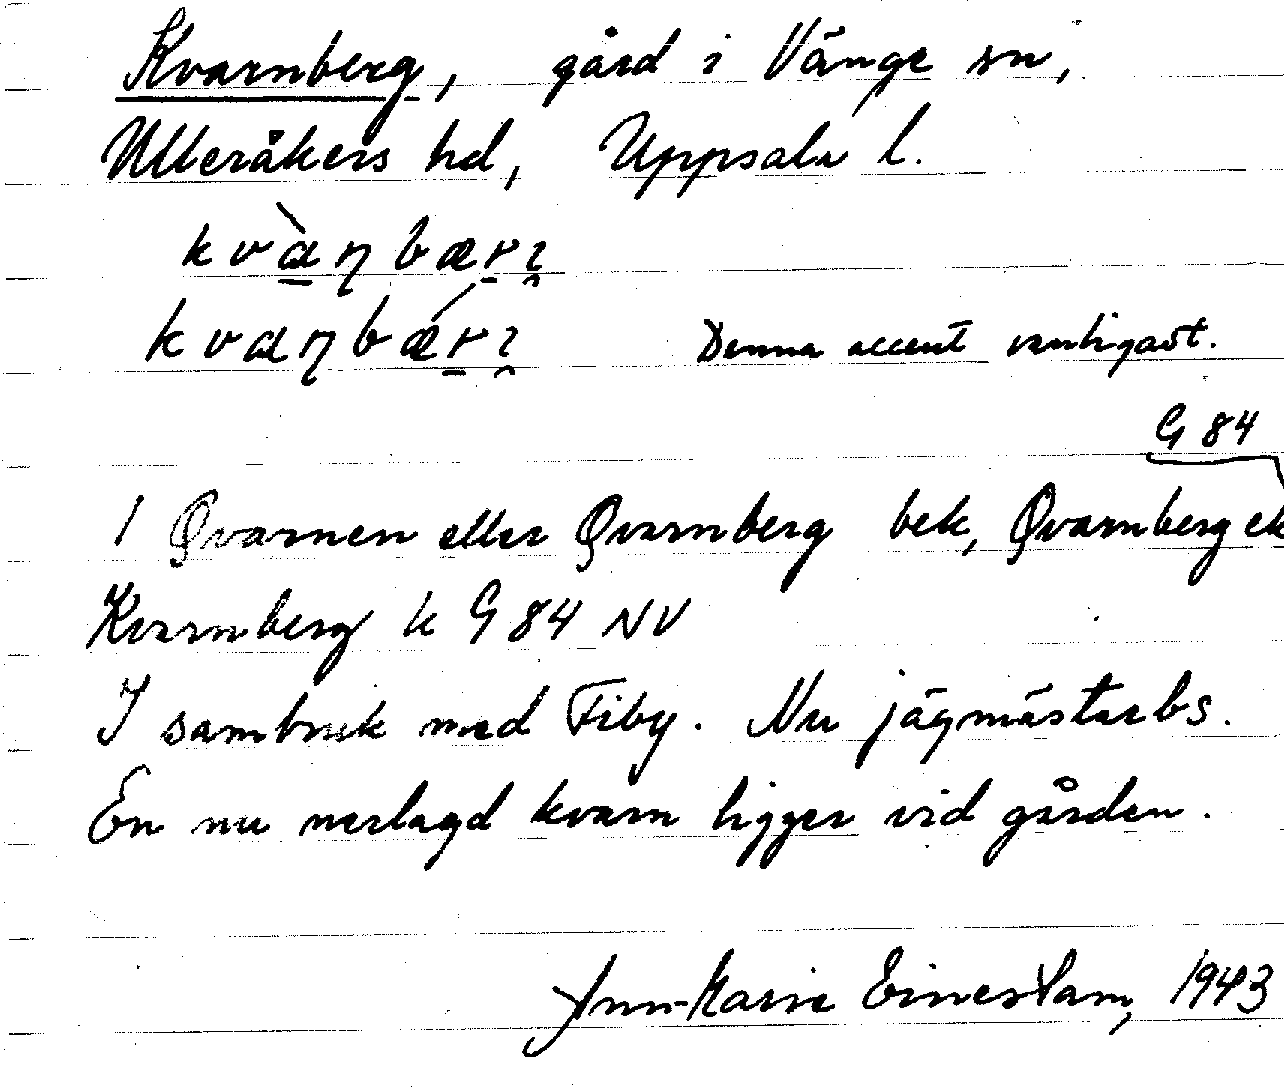 Kvarnberg, gård i Vänge sn,
Ulleråkers hd, Uppsala l.
kvànbæri
kvanbǽri Denna accent vanligast.
G 84
1 Qvarnen eller Qvarnberg bek, Qvarnberg ek
Kvarnberg k G 84 NV
I sambruk med Fiby. Nu jägmästarbs.
En nu nerlagd kvarn ligger vid gården.
Ann-Marie 1943